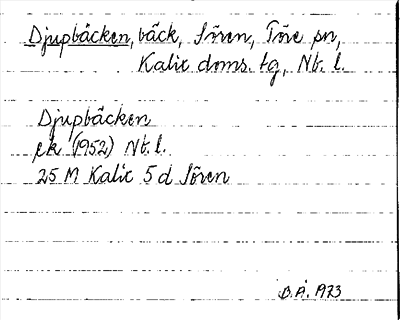 Djupbäcken, bäck, Sören, Töre sn,
Kalix doms. tg, Nb. l.
Djupbäcken
ek (1952) Nb. l.
25 M Kalix 5 d Sören
B.Å. 1973